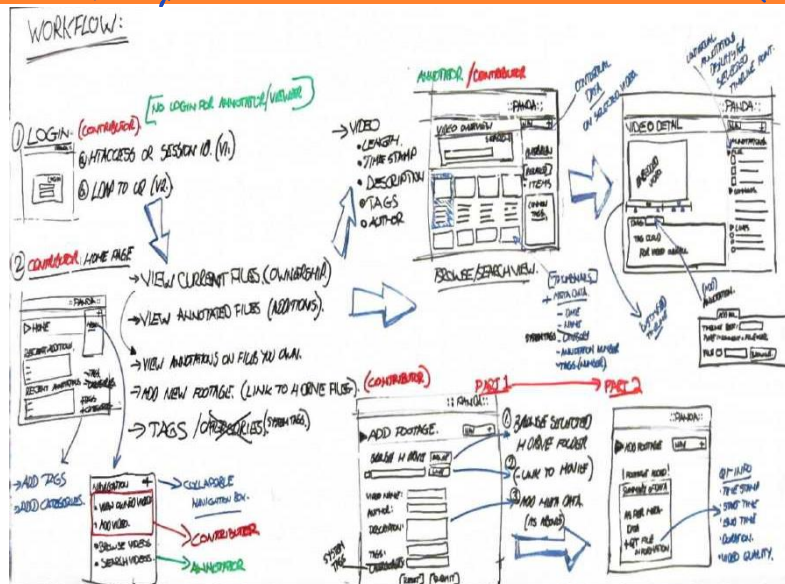 WORKFLOW:
① LOGIN. (CONTRIBUTOR).
[NO LOGIN FOR ANNOTATOR/VIEWER]
ⓐ HTACCESS OR SESSION ID. (V1.)
ⓑ LDAP TO (V2.)
② CONTRIBUTOR: HOME PAGE
::PANDA::
▷HOME
RECENT ADDITION
RECENT ANNOTATIONS
→ADD TAGS
→ADD CATEGORIES.
→VIEW CURRENT FILES. (OWNERSHIP)
→VIEW ANNOTATED FILES (ADDITIONS).
→VIEW ANNOTATIONS ON FILES YOU OWN.
→ADD NEW FOOTAGE. (LINK TO H DRIVE FILES). (CONTRIBUTOR)
→TAGS / CATEGORIES (SYSTEM TAGS)
NAVIGATION
• VIEW OWNED VIDEO
• ADD VIDEO.
• BROWSE VIDEOS
• SEARCH VIDEOS
→COLLAPSABLE NAVIGATION BOX.
CONTRIBUTER
ANNOTATOR
→VIDEO
• LENGTH.
• TIME STAMP
• DESCRIPTION
• TAGS
• AUTHOR
ANNOTATOR/CONTRIBUTOR
::PANDA::
VIDEO OVERVIEW
RELATED ITEMS
COMMON TAGS
CONTEXTUAL
DATA
ON SELECTED VIDEO.
BROWSE/SEARCH VIEW.
[THUMBNAILS]
+ META DATA
- DATE
- NAME
SYSTEM TAGS - CATEGORY
- ANNOTATION NUMBER
- TAGS (NUMBER)
ANNOTATIONS
DISPLAY FOR
SELECTED
TIMELINE POINT.
::PANDA::
VIDEO DETAIL
NAV +
EMBEDDED VIDEO
ANNOTATIONS
TAGS
TAG CLOUD
FOR VIDEO
LINKS
(ADD)
ANNOTATION.
FILE
PART 1
PART 2
::PANDA::
▶ADD FOOTAGE.
NAV +
BROWSE H DRIVE
VIDEO NAME:
AUTHOR:
DESCRIPTION:
TAGS:
CATEGORIES:
SUBMIT
SYSTEM
TAGS
① BROWSE SELECTED
H DRIVE FOLDER
②
-LINK TO MOVIE
③
ADD META DATA
(AS ABOVE)
::PANDA::
▷ADD FOOTAGE
NAV +
FOOTAGE ADDED!
SUMMARY OF DATA
AS PER META-
DATA
+ QT FILE
INFORMATION
QT INFO
• TIME STAMP
• START TIME
• END TIME
• DURATION.
• VIDEO QUALITY.